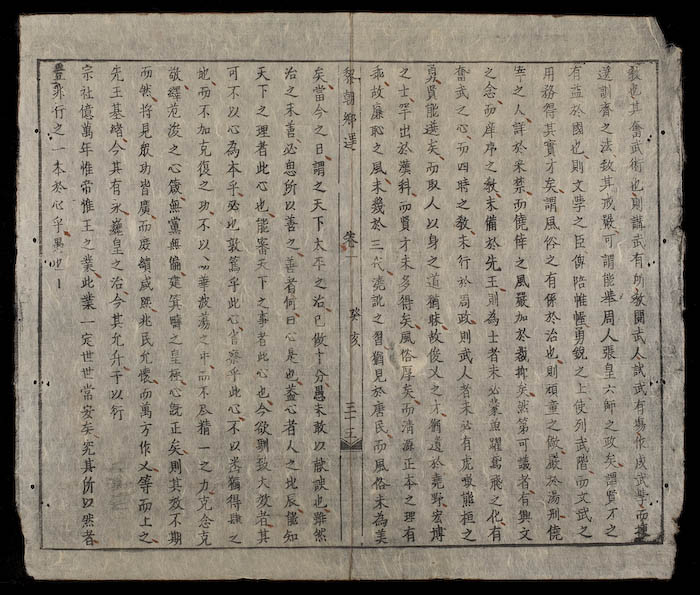 數也其奮武術也則講武有所教閱武人試武有場作成武學而擇
選訓齊之法教其戒嚴可謂能舉周人張皇六師之政矣謂賢才之
有益於國也則文學之臣俾陪帷幄勇銳之上使列武階而文武之
用務得其實才矣謂風俗之有係於治也則頑童之儆嚴於湯刑僥
宰之人詳於禁而僥倖之風嚴加於裁抑矣然第可議者有興文
之念而庠序之教未備於先王則為士者未必蒙魚躍鳶飛之化有
奮武之心而四時之教未行於周政則武人者未必有虎熊桓之
勇賢能選矣而取人以身之道猶昧故俊乂之才猶遺於堯野宏博
之士罕出於漢科而賢才未多得矣風俗厚矣而清源正本之理有
乖故廉恥之風未幾於三代澆訛之習猶見於唐民而風俗未為美
黎朝鄉選 卷一 癸亥 三十五
矣當今之日謂之天下太平之治已做十分愚未敢以獻諛也雖然
治之未善必思所以善之善者何曰心是也蓋心者人之地辰能知
天下之理者此心也能審天下之事者此心也今欲馴致大教者其
可不以心為本乎必也敦篤乎此心省察乎此心不以崇獨得肆之
地而不加克復之功不以華裁蕩之中而不忽精一之力克念克
敬繹范浚之心箴無黨無偏建箕疇之皇極心既正矣則其效不期
而然將見眾功皆廣而庶績咸熙兆民允懷而萬方作乂等而上之
先王基緒今其有永羲皇之治今其允升于以衍
宗社億萬年惟常惟王之業此業一定世世當安矣究其所以然者
豈非行之一本於心乎愚也